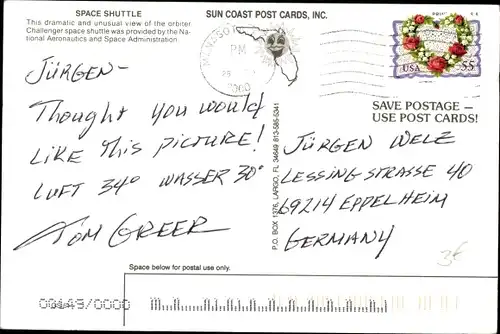 SPACE SHUTTLE
This dramatic and unusual view of the orbiter
Challenger space shuttle was provided by the Na-
tional Aeronautics and Space Administration.
SUN COAST POST CARDS, INC.
PM
2000
USA 55
SAVE POSTAGE —
USE POST CARDS!
JÜRGEN—
Thought you would
LIKE this picture!
LUFT 34° WASSER 30°
TOM GREER
P.O. BOX 1376, LARGO, FL 34649 813-585-5341
JÜRGEN WELZ
LESSING STRASSE 40
69214 EPPELHEIM
GERMANY
3€
Space below for postal use only.